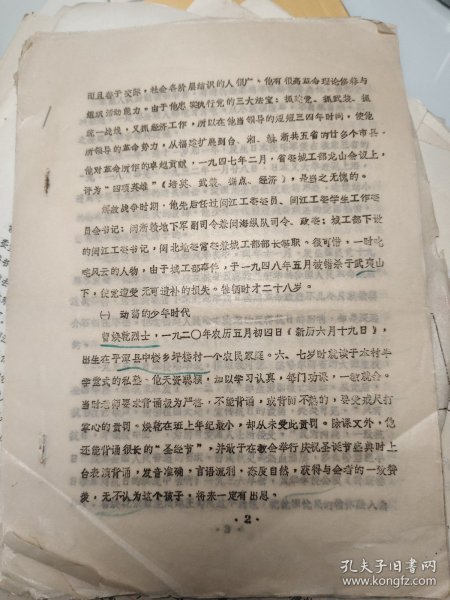 而且善于交际，社会各阶层结识的人很广。他有很高革命理论修养与
组织活动能力。由于他忠实执行党的三大法宝：抓建党、抓武装、抓
统一战线，又抓经济工作，所以在他当领导的短短三四年时间，使他
所领导的革命势力，从福建扩展到台、湘、赣、浙共五省的廿多个市县。
他对革命所作的卓越贡献，一九四七年二月，省委城工部龙山会议上，
评为“四项英雄”（培英、武装、据点、经济），是当之无愧的。
解放战争时期，他先后任过闽江工委书记、闽江工委学生工作委
员会书记；闽浙赣地下军副司令兼闽海纵队司令、政委；城工部下设
的闽江工委书记，闽北地委常委兼城工部部长等职。很可惜，一时叱
咤风云的人物，由于城工部事件，于一九四八年五月被错杀于武夷山
下，使党遭受无可追补的损失。牺牲时才二十八岁。
㈠ 动荡的少年时代
曾焕乾烈士，一九二〇年农历五月初四日（新历六月十九日），
出生在平潭县中楼乡圩楼村一个农民家庭。六、七岁时就读于本村半
学堂式的私塾。他天资聪颖，加以学习认真，每门功课，一教就会。
当时老师要求背诵极为严格，不能背诵，或背而不熟的，要受戒尺打
掌心的责罚。焕乾在班上年纪最小，却从未受此责罚。除课文外，他
还能背诵很长的“圣经节”，并敢于在教会举行庆祝圣诞节盛典时上
台表演背诵，发音准确，言语流利，态度自然，获得与会者的一致赞
赏，无不认为这个孩子，将来一定有出息。
·2·
孔夫子旧书网
www.kongfz.com